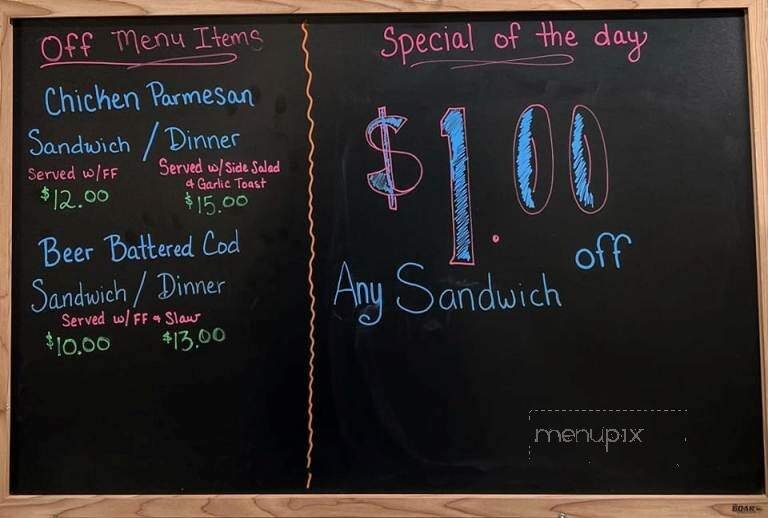 Off Menu Items
Chicken Parmesan
Sandwich / Dinner
Served w/FF
$12.00
Served w/ Side Salad
& Garlic Toast
$15.00
Beer Battered Cod
Sandwich / Dinner
Served w/ FF & Slaw
$10.00 $13.00
Special of the day
$1.00
off
Any Sandwich
menupix
BOAK